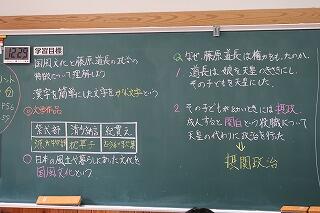 学習目標
国風文化と藤原道長の政治の
特徴について理解しよう
漢字を簡単にした文字をかな文字という
文学作品
紫式部 清少納言 紀貫之
源氏物語 枕草子
○日本の風土や暮らしにあった文化を
国風文化という
Q なぜ、藤原道長は権力をもったのか。
1 道長は娘を天皇のきさきにし、
その子を天皇にした。
2 その子が幼いときには摂政、
成人すると関白という役職について
天皇の代わりに政治を行った
摂関政治